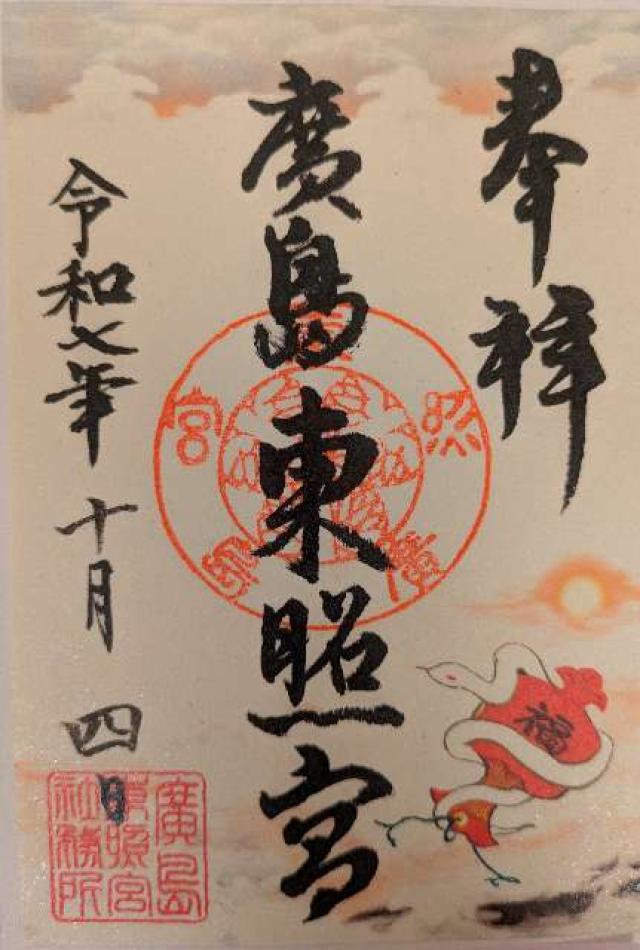 奉拝
廣島東照宮
令和七年十月四日
福
廣島
東照宮
社務所